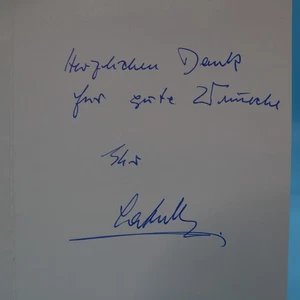 Herzlichen Dank
für gute Wünsche
Ihr